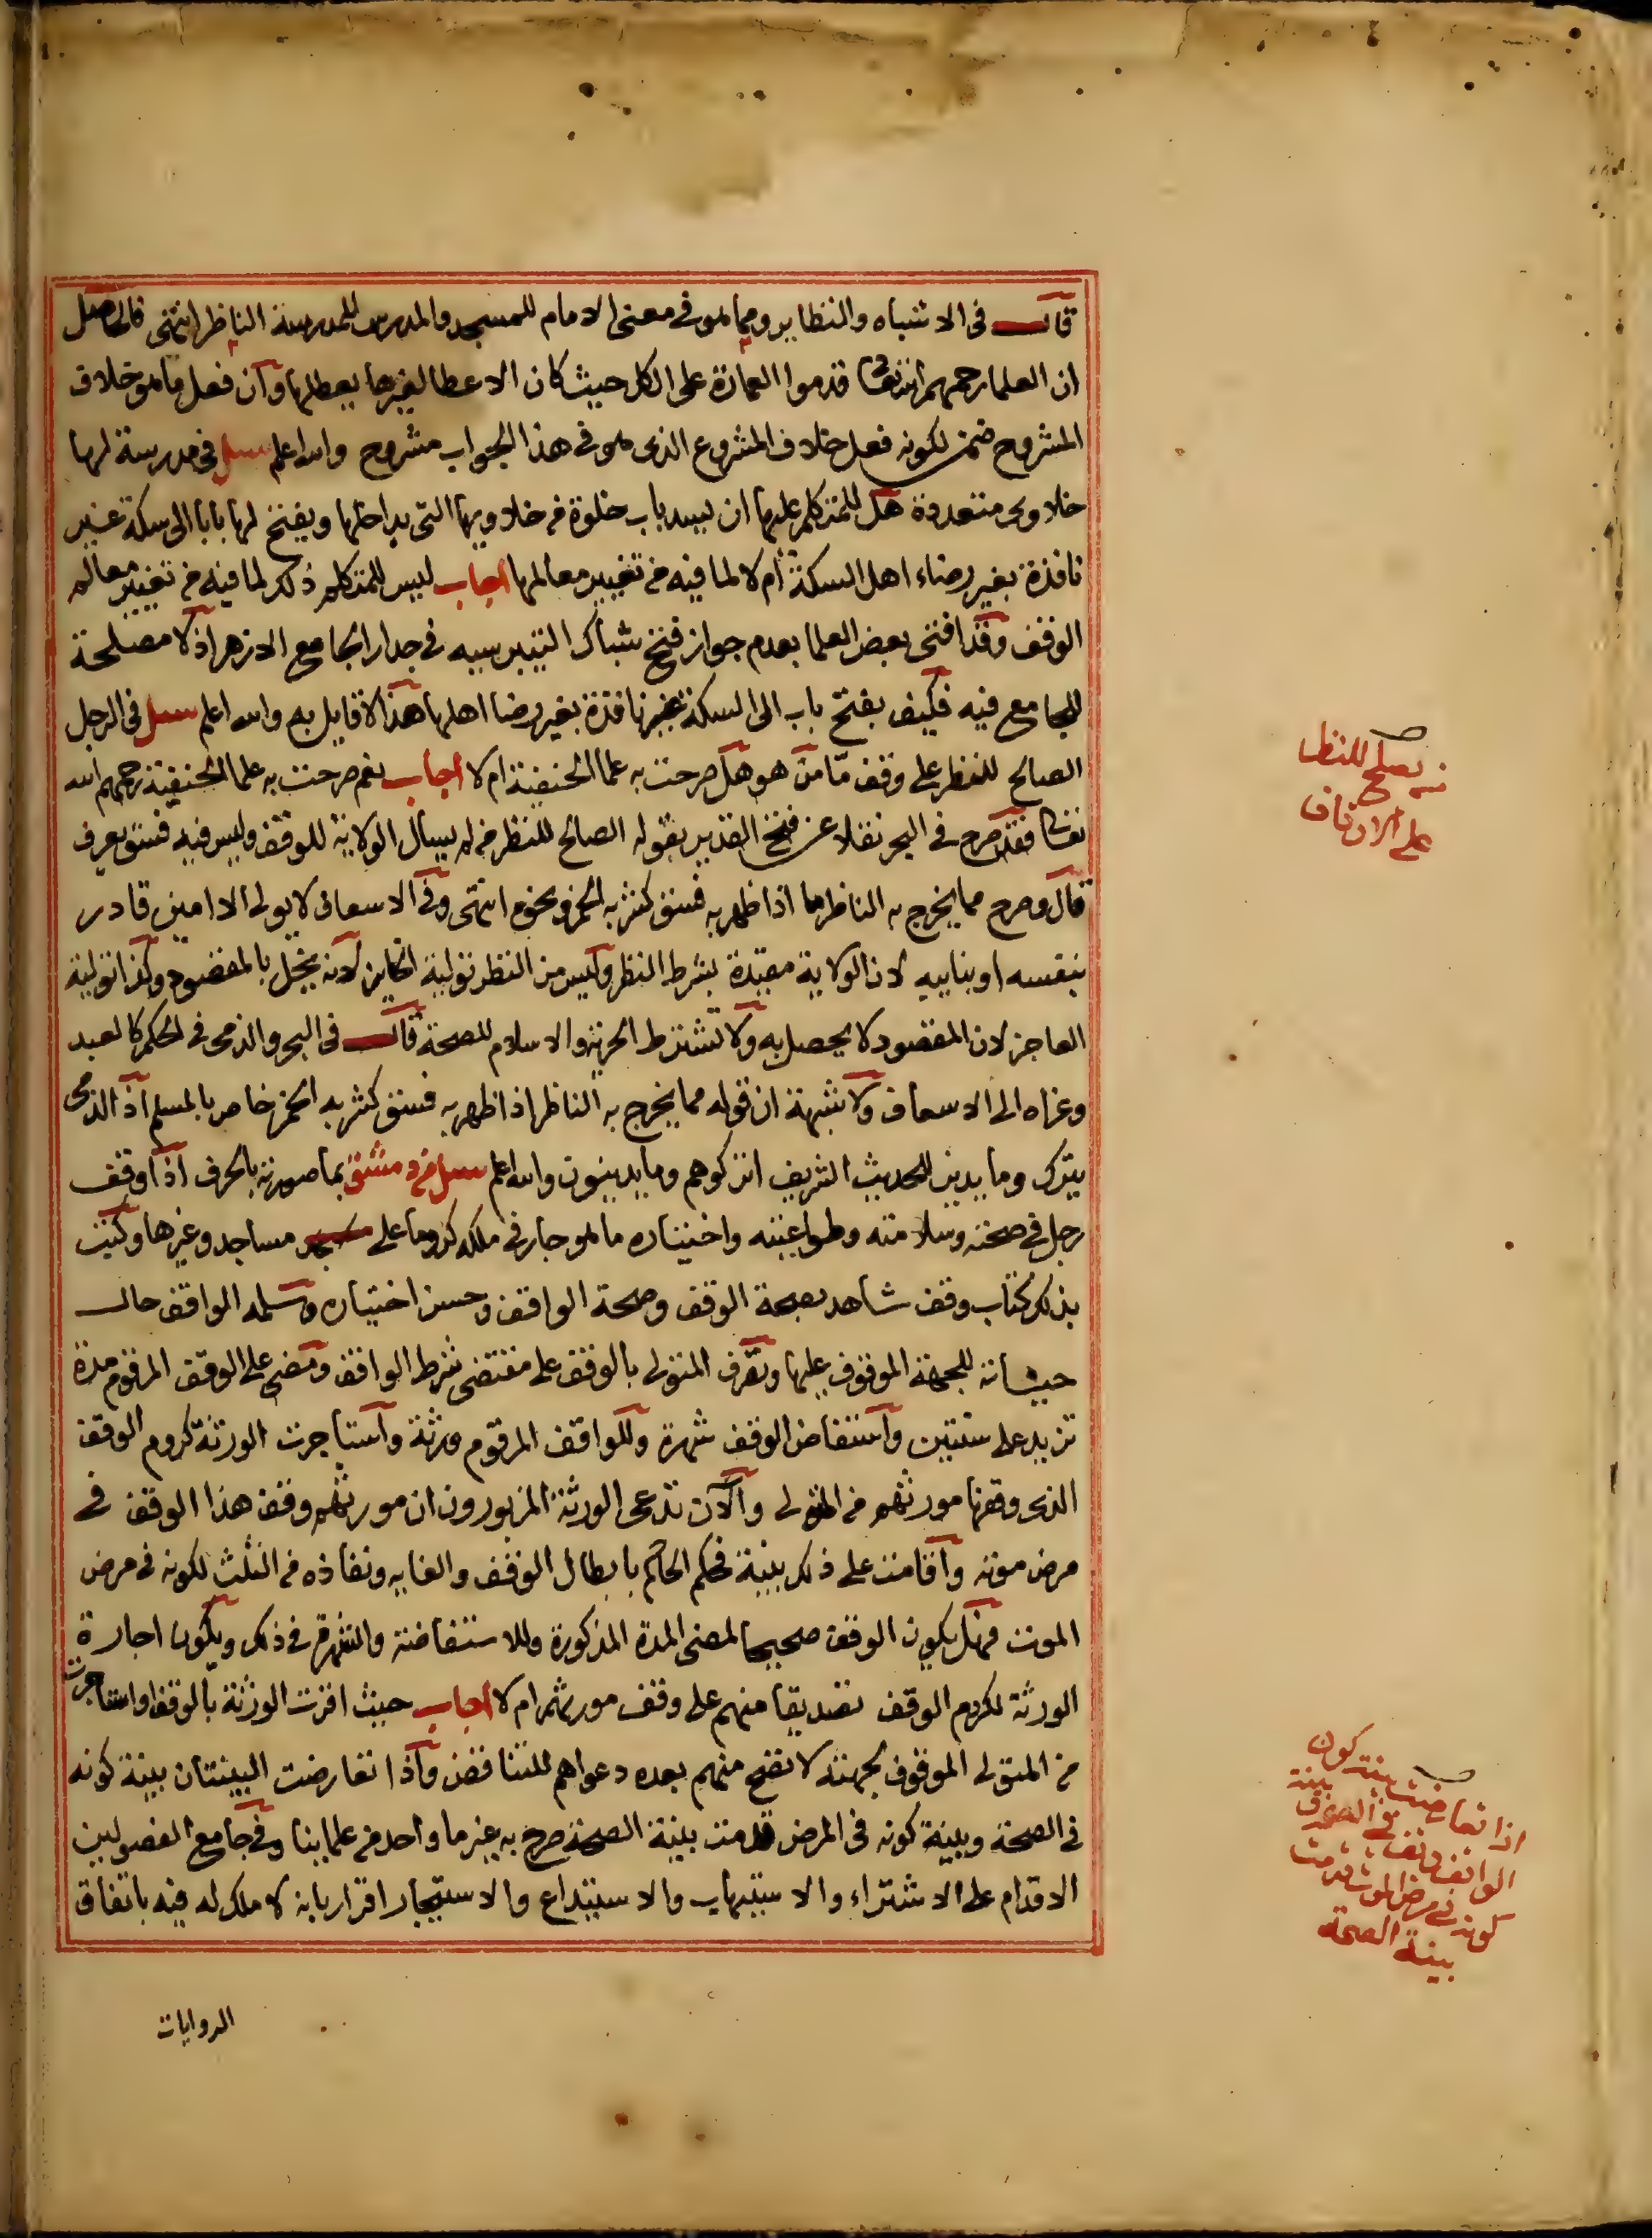 قال في الاشباه والنظاير ومما هو في معنى الامام للمسجد والمدرس للمدرسة الناظر انتهى فالحاصل
ان العلما رحمهم الله تعالى قدموا العمارة على الكل حيث كان الاعطا لغيرها يعطلها وان فعل ما هو خلاف
المشروح ضمن لكونه فعل خلاف المشروع الذى هو فى هذا الجواب مشروح والله اعلم سيل فى مدرسة لها
خلاوى متعددة هل للمتكلم عليها ان يسد باب خلوة من خلاويها التى بداخلها ويفتح لها بابا الى سكة غير
نافذة بغير رضاء اهل السكة أم لا لما فيه من تغيير معالمها اجاب ليس للمتكلم ذلك لما فيه من تغيير معالم
الوقف وقد افتى بعض العلما بعدم جواز فتح شباك التيبرسيه فى جدار الجامع الازهر اذ لا مصلحة
للجامع فيه فكيف بفتح باب الى السكة غير نافذة بغير رضا اهلها هذا لا قايل به والله اعلم سيل فى الرجل
الصالح للنظر على وقف ما من هو هل صرحت به علما الحنفية ام لا اجاب نعم صرحت به علما الحنفية رحمهم الله
تعالى فقد صرح فى البحر نقلا عن فتح القدير بقوله الصالح للنظر من لم يسال الولاية للوقف وليس فيه فسق يعرف
قال وصرح مما يخرج به الناظر ما اذا ظهر به فسق كشربه الخمر ونحوه انتهى وفى الاسعاف لا يولى الا امين قادر
بنفسه او بنايبه لان الولاية مقيدة بشرط النظر وليس من النظر تولية الخاين لانه يخل بالمقصود وكذا تولية
العاجز لان المقصود لا يحصل به ولا تشترط الحرية والاسلام للصحة قال فى البحر والذمى فى الحكم كالعبد
وعزاه الى الاسعاف ولا شبهة ان قوله مما يخرج به الناظر اذا ظهر به فسق كشربه الخمر خاص بالمسلم اذ الذمى
يترك وما يدين للحديث الشريف اتركوهم وما يدينون والله اعلم سيل من دمشق بما صورته بالحرف اذا وقف
رجل فى صحته وسلامته وطواعيته واختياره ما هو جار فى ملكه كروما على مساجد وغيرها وكتبت
بذلك كتاب وقف شاهد بصحة الوقف وصحة الواقف وحسن اختياره وسلمه الواقف حال
حياته للجهة الموقوف عليها وتصرف المتولى بالوقف على مقتضى شرط الواقف ومضى على الوقف المرقوم مدة
تزيد على سنتين واستفاض الوقف شهرة وللواقف المرقوم ورثة واستاجرت الورثة كروم الوقف
الذى وقفها مورثهم من المتولى والآن تدعى الورثة المزبورون ان مورثهم وقف هذا الوقف فى
مرض موته واقامت على ذلك بينة فحكم الحاكم بابطال الوقف والغايه ونفاذه من الثلث لكونه فى مرض
الموت فهل يكون الوقف صحيحا لمضى المدة المذكورة وللاستفاضة والشهرة فى ذلك ويكون اجارة
الورثة لكروم الوقف تصديقا منهم على وقف مورثهم ام لا اجاب حيث اقرت الورثة بالوقف او استاجرت
من المتولى الموقوف لجهته لا تصح منهم بعده دعواهم للتناقض واذا تعارضت البينتان بينة كونه
فى الصحة وبينة كونه فى المرض قدمت بينة الصحة صرح به غير ما واحد من علماينا وفى جامع الفصولين
الاقدام على الاشتراء والاستيهاب والاستيداع والاستيجار اقرار بانه لا ملك له فيه باتفاق
الروايات
من يصلح للنظر
على الاوقاف
اذا تعارضت بينة كون
الواقف وقف فى الصحة وبينة
كونه فى مرض الموت قدمت
بينة الصحة